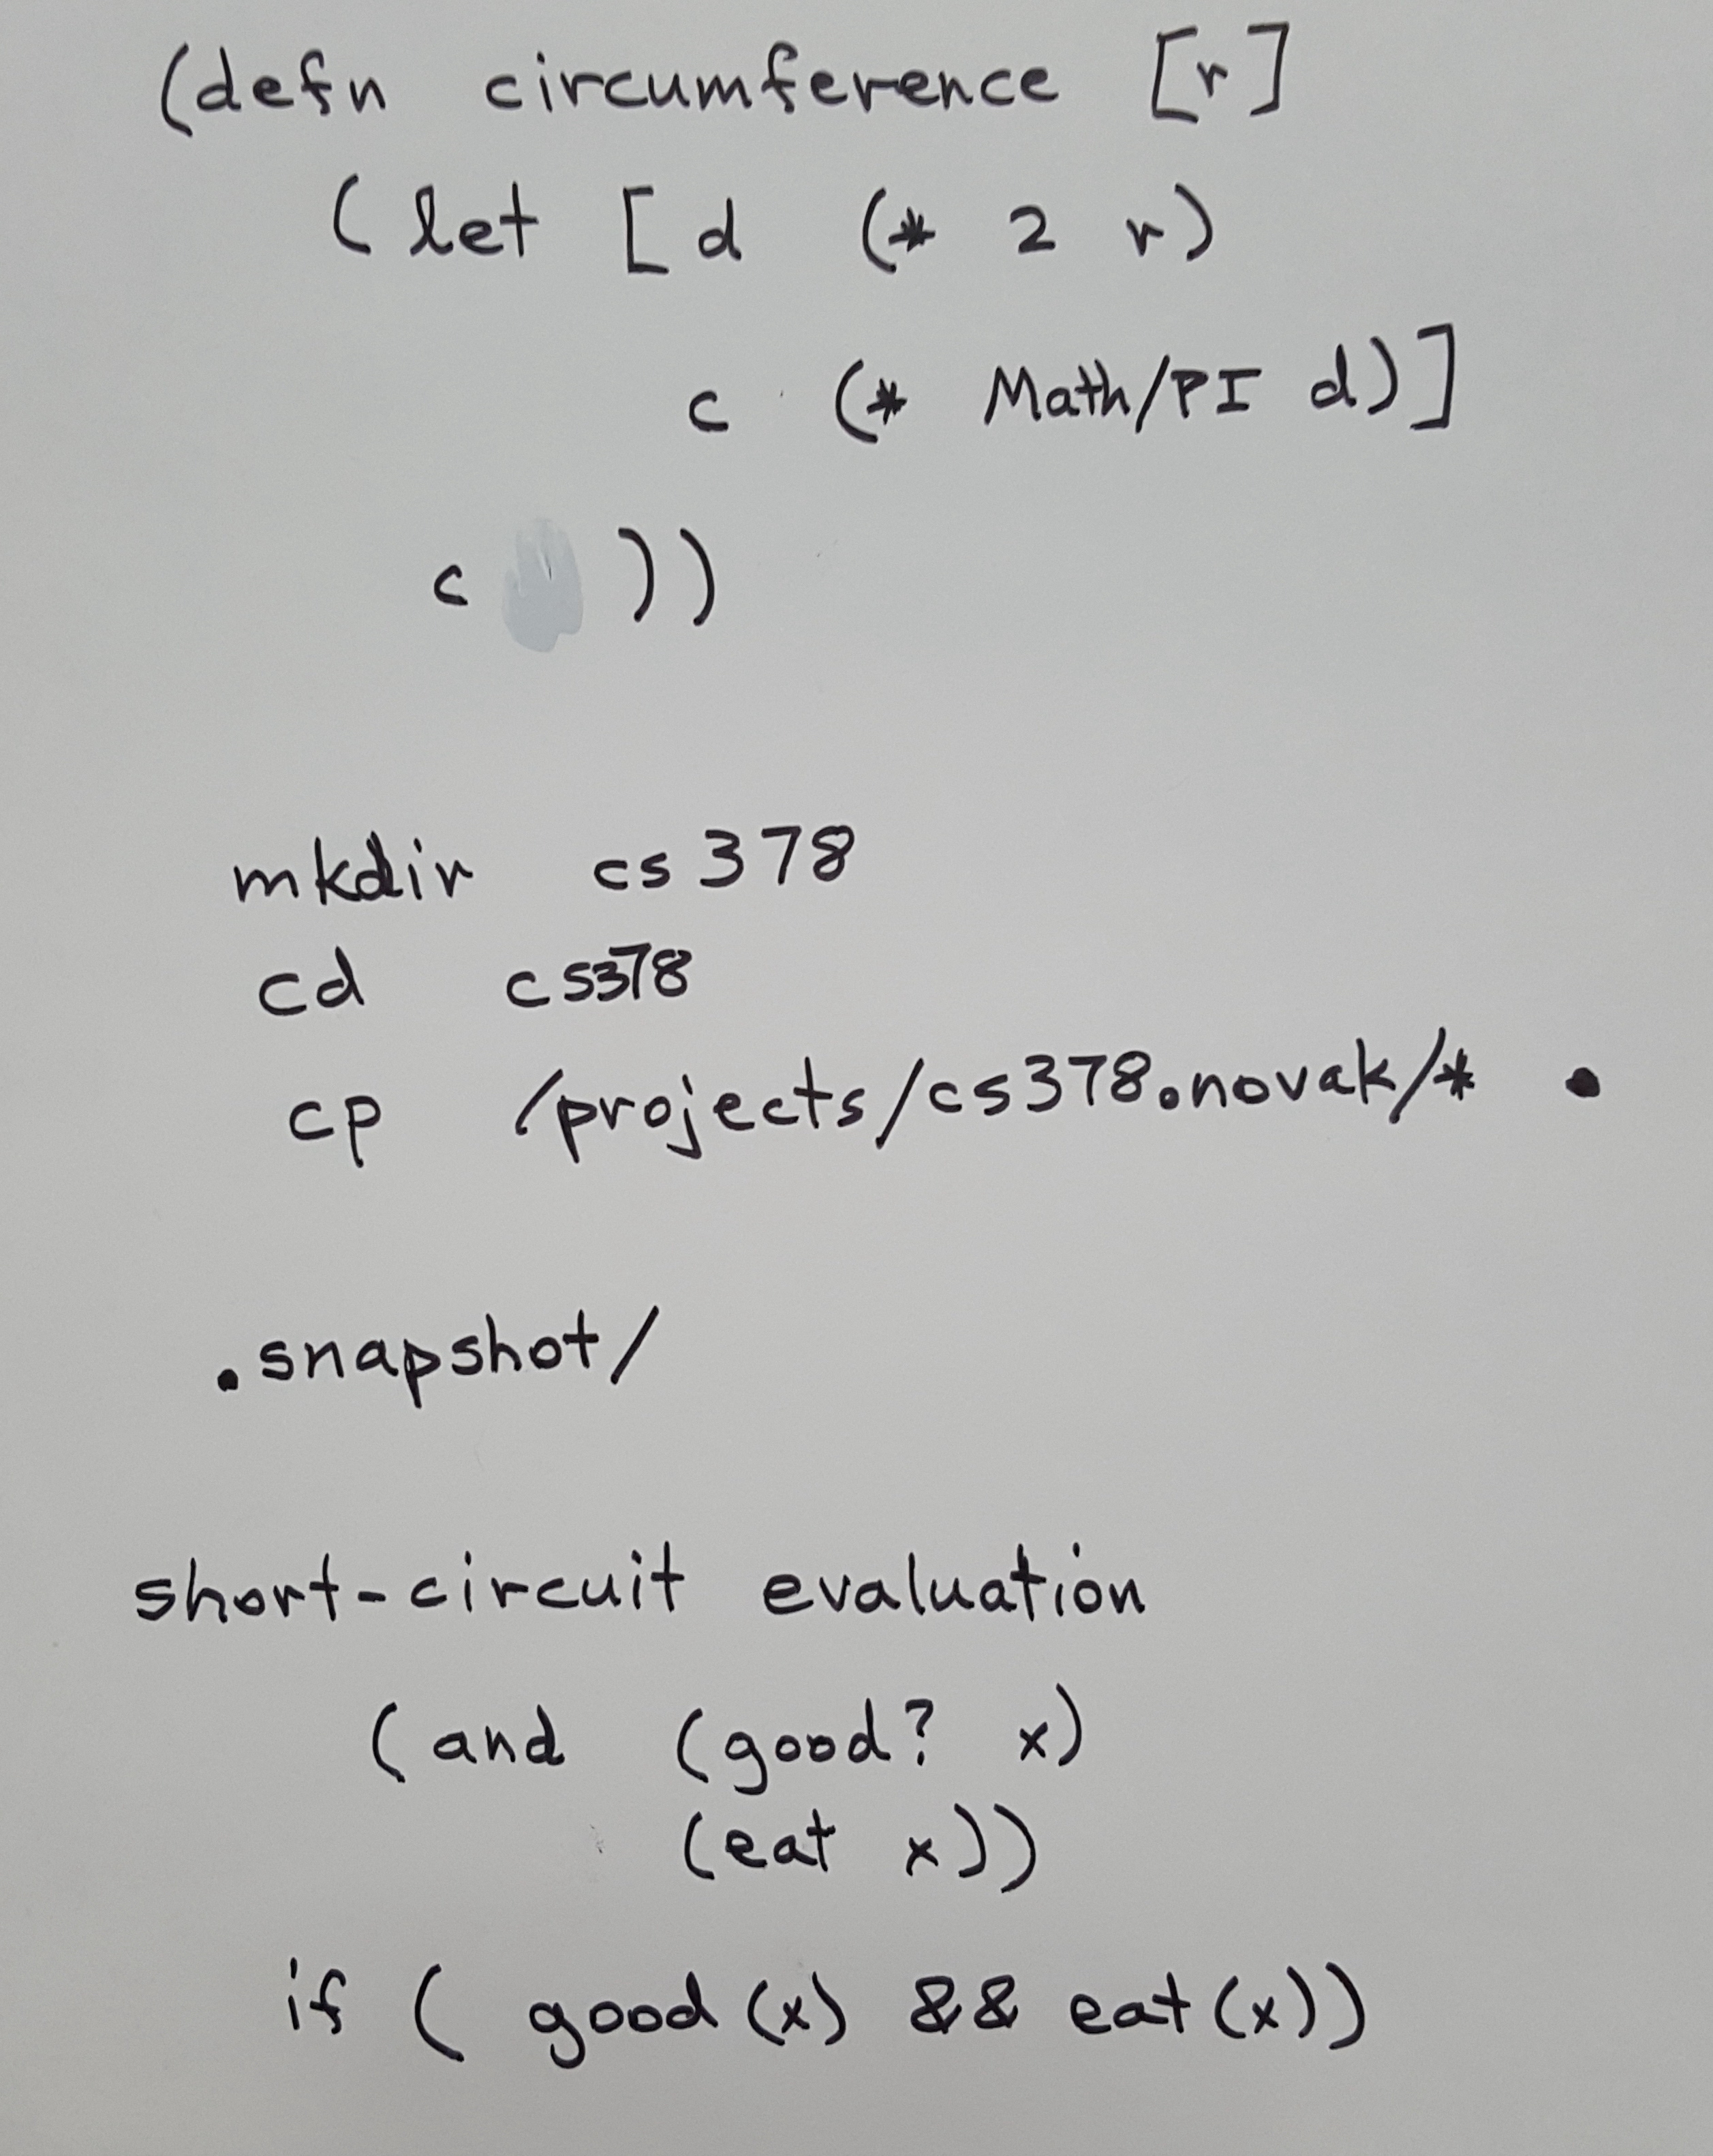 (defn circumference [r]
(let [d (* 2 r)
c (* Math/PI d)]
c ))
mkdir cs378
cd cs378
cp /projects/cs378.novak/* .
.snapshot/
short-circuit evaluation
(and (good? x)
(eat x))
if ( good (x) && eat (x))